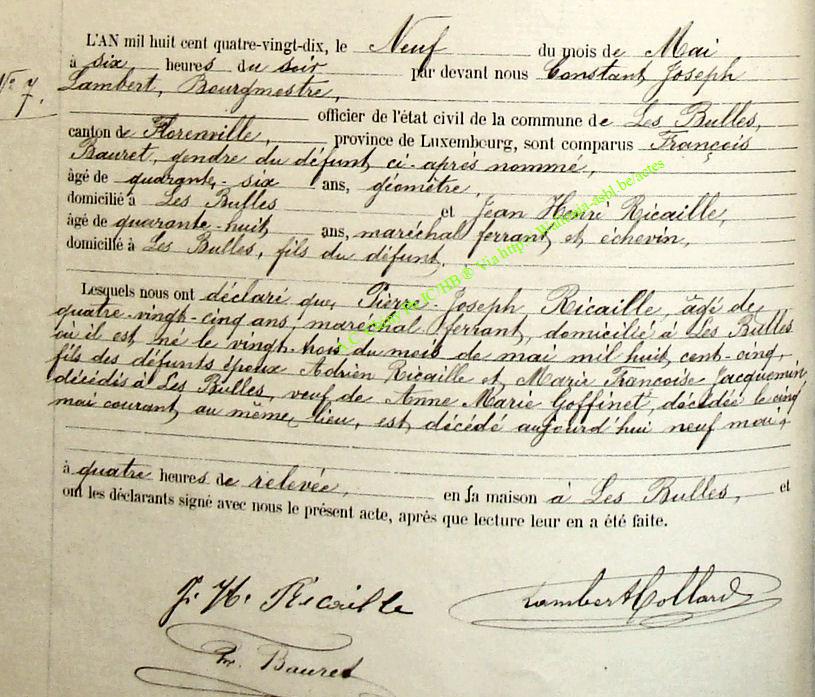 L'AN mil huit cent quatre-vingt-dix, le Neuf du mois de Mai
à six heures du soir par devant nous Constant Joseph
N° 7.
Lambert, Bourgmestre,
officier de l'état civil de la commune de Les Bulles,
canton de Florenville, province de Luxembourg, sont comparus François
Bauret, gendre du défunt ci-après nommé,
âgé de quarante-six ans, géomètre,
domicilié à Les Bulles et Jean Henri Ricaille,
âgé de quarante-huit ans, maréchal ferrant et échevin,
domicilié à Les Bulles, fils du défunt.
Lesquels nous ont déclaré que Pierre-Joseph Ricaille, âgé de
quatre-vingt-cinq ans, maréchal-ferrant, domicilié à Les Bulles
où il est né le vingt-trois du mois de mai mil huit cent-cinq,
fils des défunts époux Adrien Ricaille et Marie Françoise Jacquemin
décédés à Les Bulles, veuf de Anne Marie Goffinet, décédée le cinq
mai courant au même lieu, est décédé aujourd'hui neuf mai,
à quatre heures de relevée, en sa maison à Les Bulles, et
ont les déclarants signé avec nous le présent acte, après que lecture leur en a été faite.
J. H. Ricaille
Lambert Collard
Bauret